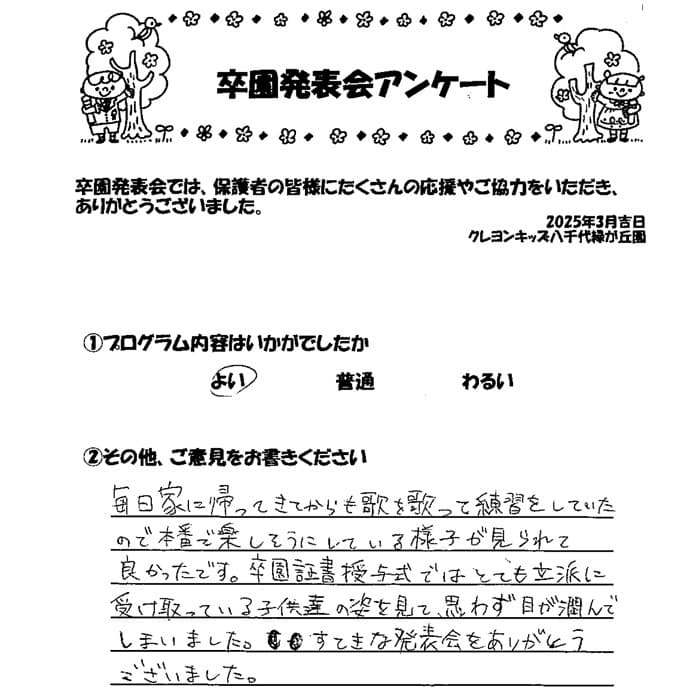 卒園発表会アンケート
卒園発表会では、保護者の皆様にたくさんの応援やご協力をいただき、
ありがとうございました。
2025年3月吉日
クレヨンキッズ八千代緑が丘園
①プログラム内容はいかがでしたか
よい 普通 わるい
②その他、ご意見をお書きください
毎日家に帰ってきてからも歌を歌って練習をしていた
ので本番で楽しそうにしている様子が見られて
良かったです。卒園証書授与式ではとても立派に
受け取っている子供達の姿を見て、思わず目が潤んで
しまいました。すてきな発表会をありがとう
ございました。